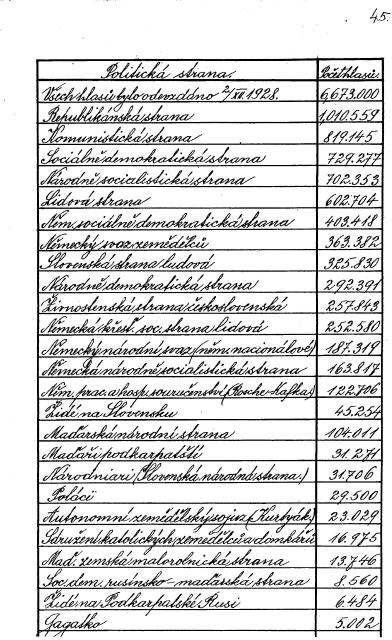 45.
Politická strana. Počet hlasů:
Všech hlasů bylo odevzdáno 2/XII.1928. 6,673.000
Republikánská strana 1,010.559
Komunistická strana 819.145
Sociálně demokratická strana 729.277
Národně socialistická strana 702.353
Lidová strana 602.704
Něm. sociálně demokratická strana 403.418
Německý svaz zemědělců 363.382
Slovenská strana ludová 325.830
Národně demokratická strana 292.391
Živnostenská strana československá 257.843
Německá křesť. soc. strana lidová 252.580
Německý národní svaz (něm. nacionálové) 187.319
Německá národně socialistická strana 163.817
Něm. prac. a hosp. souručenství (Rosche-Kafka.) 122.706
Židé na Slovensku 45.254
Maďarská národní strana 104.011
Maďaři podkarpatští 31.271
Národniari (Slovenská národná strana.) 31.706
Poláci 29.500
Autonomní zemědělský sojuz (Kurtyák.) 23.029
Sdružení katolických zemědělců a domkářů 16.975
Maď. zemská malorolnická strana 13.746
Soc. dem. rusínsko-maďarská strana 8.560
Židé na Podkarpatské Rusi 6.484
Gagatko 5.002